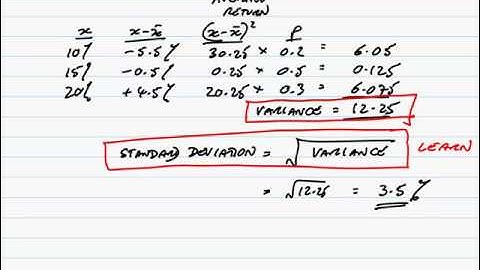 RETURN
x x-x̄ (x-x̄)² P
10% -5.5% 30.25 × 0.2 = 6.05
15% -0.5% 0.25 × 0.5 = 0.125
20% +4.5% 20.25 × 0.3 = 6.075
VARIANCE = 12.25
STANDARD DEVIATION = √VARIANCE LEARN
= √12.25 = 3.5%